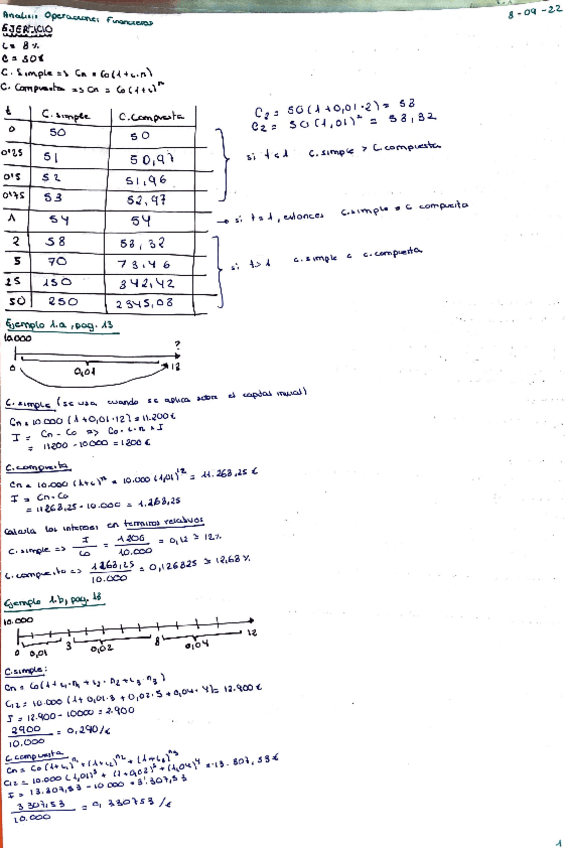 Analisis Operaciones Financieras
8-09-22
EJERCICIO
i = 8%
C = 50€
C. Simple => Cn = Co(1+i.n)
C. Compuesta => Cn = Co(1+i)^n
t C.simple C.Compuesta
0 50 50
0'25 51 50,97
0'5 52 51,96
0'75 53 52,97
1 54 54
2 58 58,32
5 70 73,46
25 150 342,42
50 250 2345,08
C2 = 50(1+0,01·2) = 58
C2 = 50(1,01)^2 = 58,32
si t<1 C.simple > C.compuesta
→ si t=1, entonces C.simple = C compuesta
si t>1 C.simple < C.compuesta
Ejemplo 1.a, pag. 13
10.000 ?
0 0,01 12
C.simple (se usa cuando se aplica sobre el capital inicial)
Cn = 10.000 (1+0,01·12) = 11.200€
I = Cn - Co => Co·i·n = I
= 11200 - 10000 = 1200€
C.compuesta
Cn = 10.000 (1+i)^n = 10.000 (1,01)^12 = 11.268,25€
I = Cn-Co
= 11268,25 - 10.000 = 1.268,25
Calcula los intereses en terminos relativos
C.simple => I/Co = 1200/10.000 = 0,12 => 12%
C.compuesta => 1268,25/10.000 = 0,126825 => 12,68%
Ejemplo 1.b, pag. 13
10.000
0 0,01 3 0,02 8 0,04 12
C.simple:
Cn = Co(1+i1·n1 + i2·n2 + i3·n3)
C12 = 10.000 (1+0,01·3 + 0,02·5 + 0,04·4) = 12.900€
I = 12.900 - 10000 = 2.900
2900/10.000 = 0,290/€
C.compuesta
Cn = Co(1+i1)^n1 * (1+i2)^n2 * (1+i3)^n3
C12 = 10.000 (1,01)^3 * (1+0,02)^5 * (1,04)^4 = 13.307,53€
I = 13.307,53 - 10.000 = 3.307,53
3307,53/10.000 = 0,330753/€
1